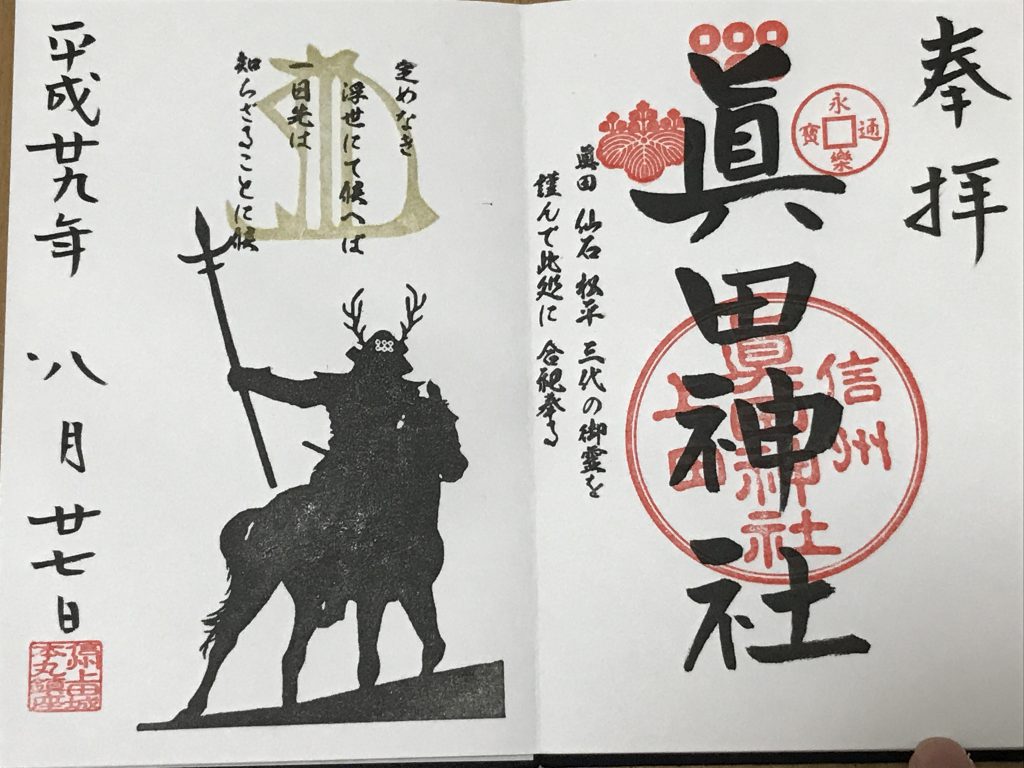 奉拝
永樂通寳
眞田神社
信州
上田
眞田神社
眞田 仙石 松平 三代の御霊を
謹んで此処に 合祀奉る
定めなき
浮世にて候へば
一日先は
知らざることに候
平成廿九年 八月 廿七日
信州上田城
本丸鎮座